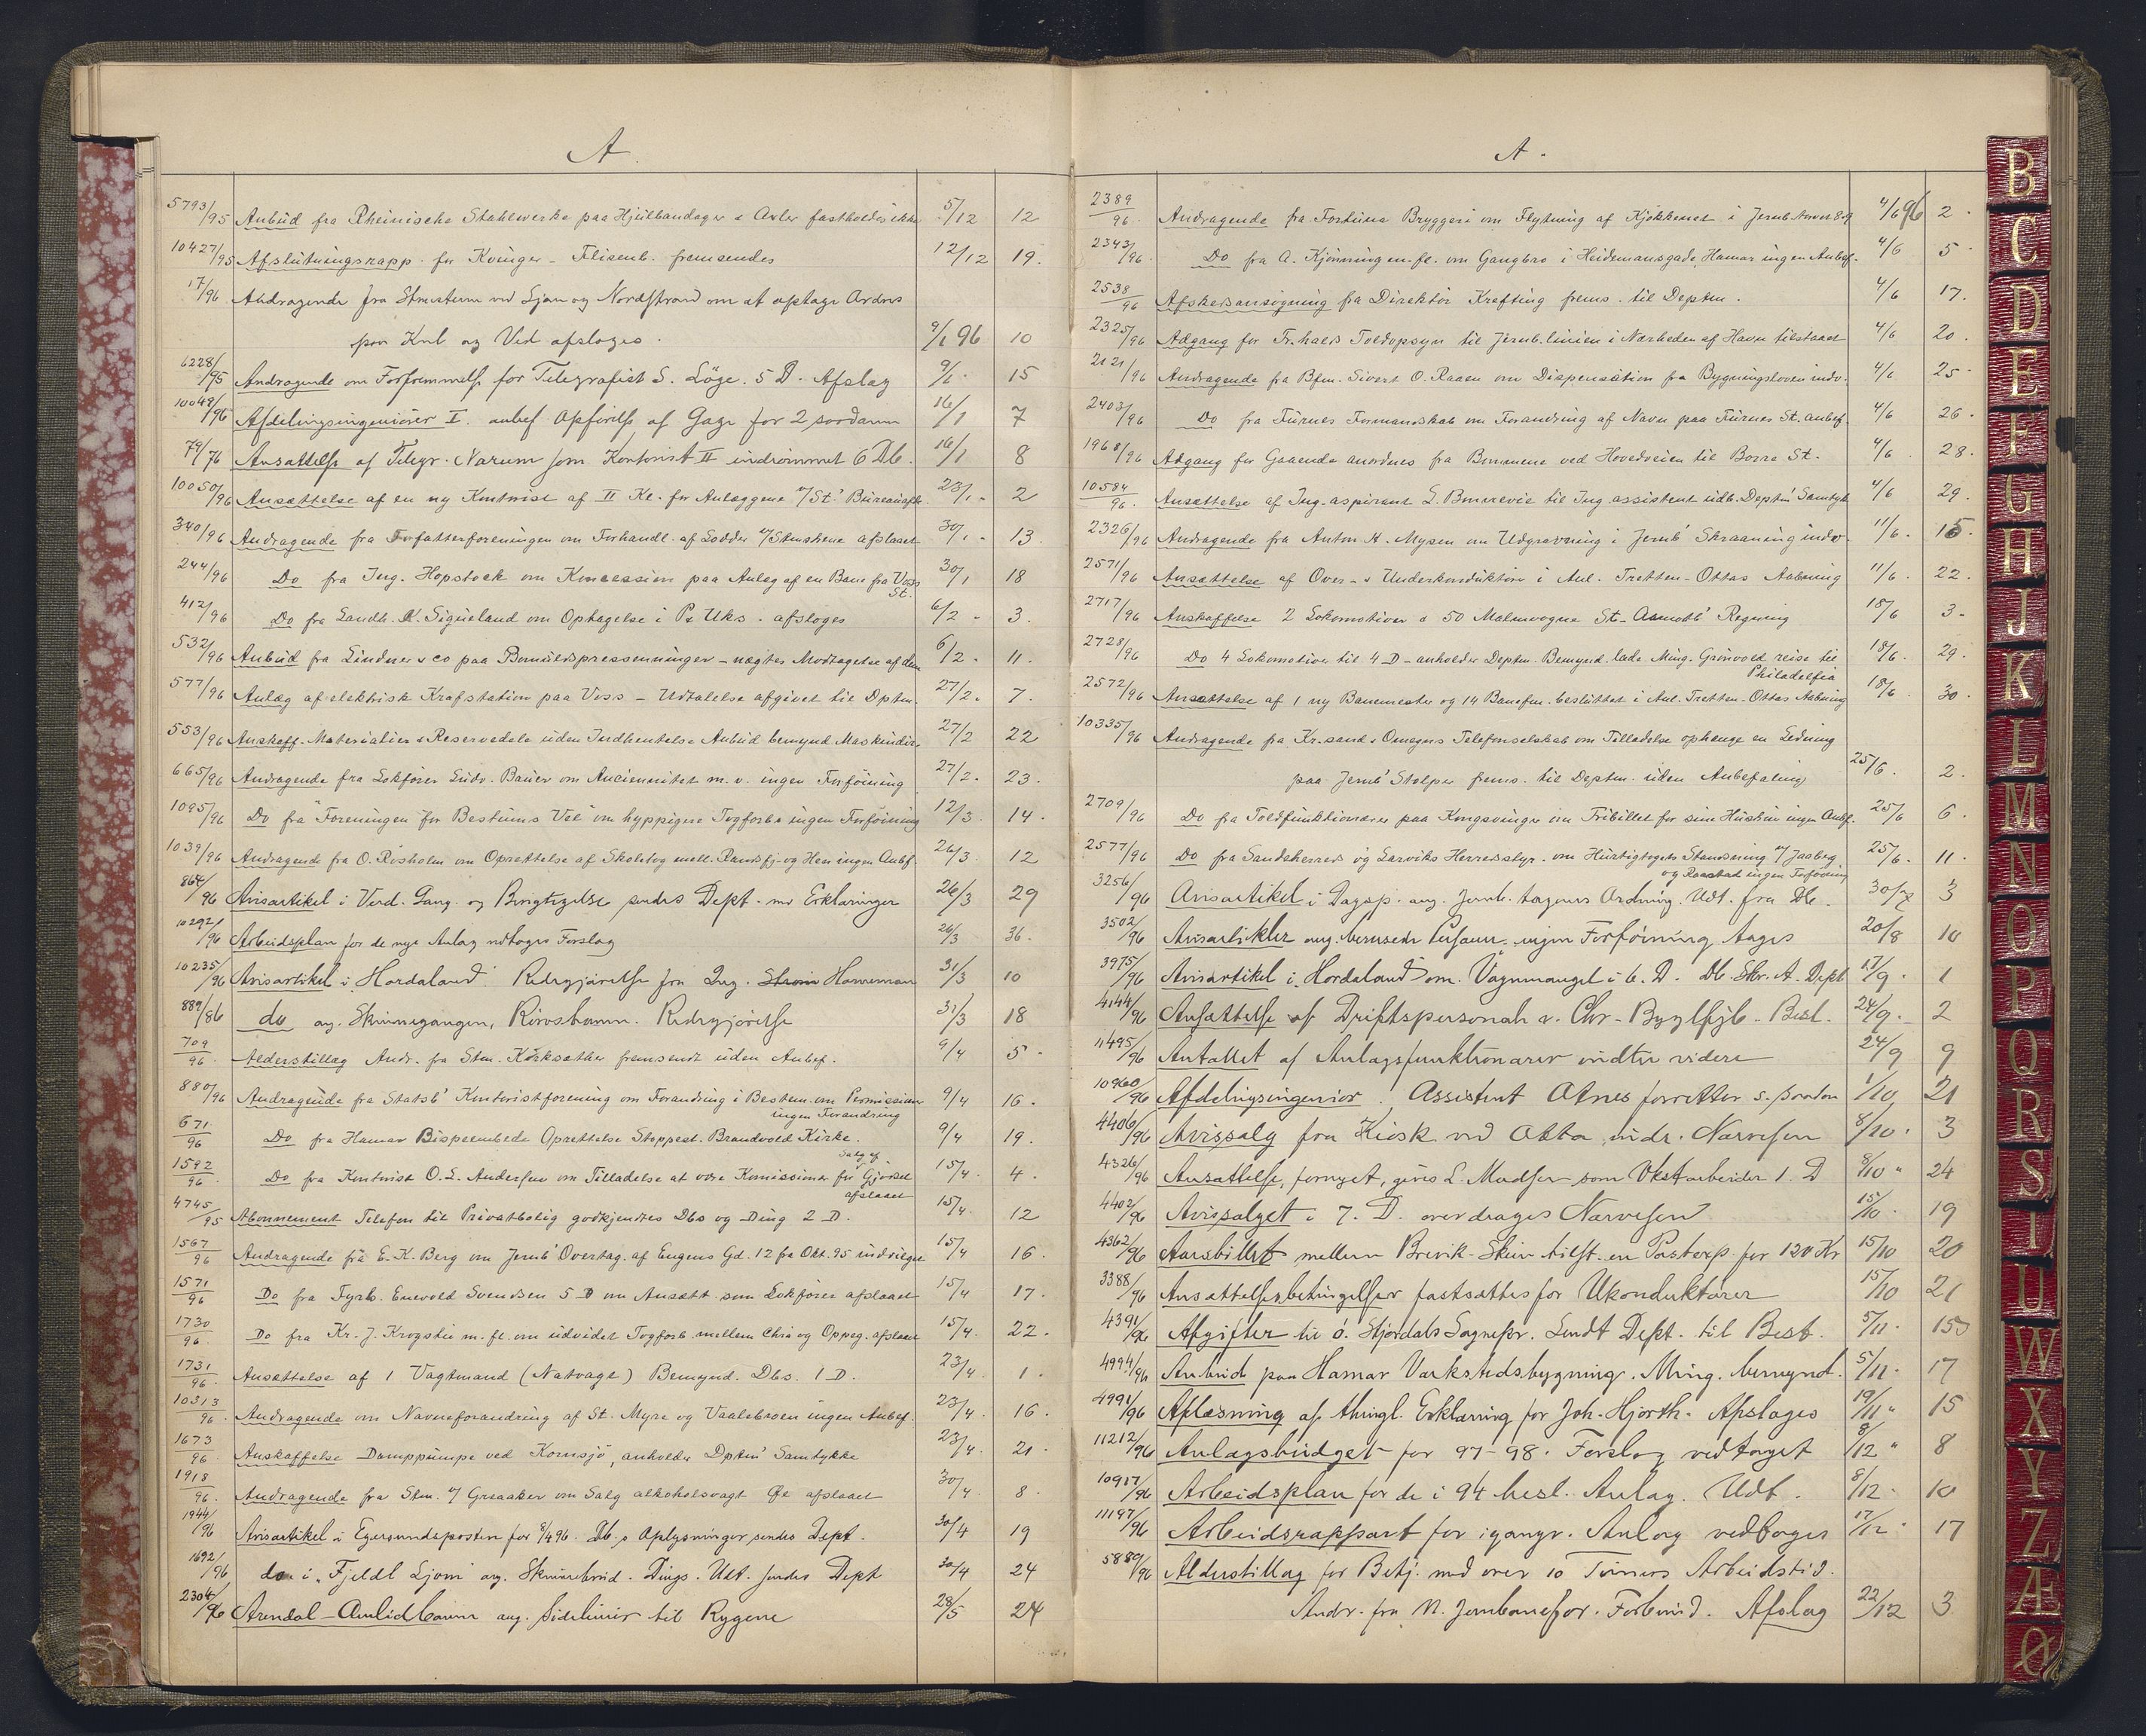 A.
5793/95 Anbud fra Rheinische Stahlwerke paa Hjulbandager & Axler fastholdes ikke 5/12 12
10427/95 Afslutningsrapp. for Kvinger - Flisenb. fremsendes 12/12 19.
17/96 Andragende fra Stuerterne ved Ljan og Nordstrand om at optage Ordres
paa Kul og Ved afslages. 9/1 96 10
6228/95 Andragende om Forfremmelse for Telegrafist S. Løge. 5 D. Afslag 9/1 15
10048/96 Afdelingsingeniører I. anbef. Opførelse af Gage for 2 saadanne 16/1 7
79/96 Ansættelse af Telegr. Narum som Kontorist II indrømmet 6 Db. 16/1 8
10050/96 Ansættelse af en ny Kontorist af II Kl. for Anlæggene v/St.' Bureau 23/1 2
340/96 Andragende fra Forfatterforeningen om Forhandl. af Lodder v/Stationene afslaaet 30/1 13.
244/96 Do fra Ing. Hopstock om Koncession paa Anlæg af en Bane fra Voss St. 30/1 18
412/96 Do fra Landh. K. Sigueland om Optagelse i P. Uks. afsloges 6/2 3.
532/96 Anbud fra Lindner & Co paa Bomuldspressenninger - nægtes Modtagelse af dem 6/2. 11.
577/96 Anlæg af elektrisk Krafstation paa Voss - Udtalelse afgivet til Dptm. 27/2. 7.
553/96 Anskaff. Materialier & Reservedele uden Indhentelse Anbud bemynd. Maskindir. 27/2 22
665/96 Andragende fra Lokfører Ludv. Bauer om Anciennitet m.v. ingen Forføining 27/2. 23.
1095/96 Do fra "Foreningen for Bestums Vel" om hyppigere Togforb. ingen Forføining 12/3. 14.
1039/96 Andragende fra O. Rosholm om Oprettelse af Skoletog mell. Randsfj. og Hen ingen Anbf. 26/3. 12
864/96 Avisartikel i Verd. Gang. og Berigtigelse sendes Dept. m. Erklæringer 26/3 29
10292/96 Arbeidsplan for de nye Anlæg vedtages Forslag 26/3 36.
10235/96 Avisartikel i "Hordaland" Redegjørelse fra Ing. Strøm Hanneman 31/3 10
889/86 do ang. Skinnegangen, Rørosbanen. Redegjørelse 31/3 18
709/96 Alderstillæg Andr. fra Stm. Kirksæther fremsendt uden Anbef. 9/4 5.
880/96 Andragende fra Statsb.' Kontoristforening om Forandring i Bestem. om Permission 9/4 16.
ingen Forandring
671/96 Do fra Hamar Bispeembede Oprettelse Stoppest. Brandvold Kirke. 9/4 19.
1592/96 Do fra Kontorist O. L. Andersen om Tilladelse at være Komissionær for Salg af Gjødsel 15/4. 4.
afslaaet
4745/95 Abonnement Telefon til Privatbolig godkjendtes Dbs og Ding 2 D. 15/4. 12
1567/96 Andragende fra E. K. Berg om Jernb' Overtag. af Eugens Gd. 12 fra Okt. 95 indvilges 15/4 16.
1571/96 Do fra Fyrb. Enevold Svendsen 5 D om Ansætt. som Lokfører afslaaet 15/4 17.
1730/96 Do fra Kr. J. Krogstie m. fl. om udvidet Togforb. mellem Chra og Oppeg. afslaaet 15/4. 22.
1731/96 Ansættelse af 1 Vagtmand (Natvagt) Bemynd. Dbs. 1 D. 23/4. 1.
10313/96 Andragende om Navneforandring af St. Myre og Vaalebroen ingen Anbef. 23/4. 16.
1673/96 Anskaffelse Damppumpe ved Kornsjø, anholdes Dptm' Samtykke 23/4. 21.
1918/96 Andragende fra Stm. v/ Graaker om Salg alkoholsvagt Øl afslaaet 30/4 8.
1944/96 Avisartikel i Egersundsposten for 8/4 96. Db.s Oplysninger sendes Dept. 30/4 19
1692/96 do i "Fjeldl. Ljom" ang. Skinnebrud. Dings. Udt. sendes Dept 30/4 24
2304/96 Arendal-Aamlidbanen ang. Sidelinier til Rygene 28/5 24
A.
2389/96 Andragende fra Fortuna Bryggeri om Flytning af Kjøkkenet i Jernb. 4/6 96 2.
2343/96 Do fra A. Kjønning m. fl. om Gangbro i Heidemansgade, Hamar ingen Anbef. 4/6 5
2538/96 Afskedsansøgning fra Direktør Krefting frems. til Deptm. 4/6 17.
2325/96 Adgang for Fr.halds Toldopsyn til Jernb.linien i Nærheden af Havn tilstaaet 4/6 20.
2121/96 Andragende fra Bfm. Sivert O. Raaen om Dispensation fra Bygningsloven indv. 4/6 25.
2403/96 Do fra Furnes Formandskab om Forandring af Navn paa Furnes St. anbef. 4/6 26.
1968/96 Adgang for Gaaende anordnes fra Bommene ved Hovedveien til Borre St. 4/6. 28.
10584/96 Ansættelse af Ing.aspirant L. Bonnevie til Ing.assistent udb. Deptm' Samtyk. 4/6 29.
2326/96 Andragende fra Anton H. Mysen om Udgravning i Jernb' Skraaning indv. 11/6. 15.
2571/96 Ansættelse af Over- & Underkonduktører i Anl. Tretten-Ottas Aabning 11/6. 22.
2717/96 Anskaffelse 2 Lokomotiver & 50 Malmvogne St-Aamodts' Regning 18/6 3.
2728/96 Do 4 Lokomotiver til 4 D - anholder Deptm. Bemynd. lade Ming. Grønvold reise til 18/6. 29.
Philadelfia
2572/96 Ansættelse af 1 ny Banemester og 14 Banefm. besluttet i Anl. Tretten-Ottas Aabning 18/6 30.
10335/96 Andragende fra Kr.sand & Omegns Telefonselskab om Tilladelse ophænge en Ledning
paa Jernb' Stolper frems. til Deptm. uden Anbefaling 25/6. 2.
2709/96 Do fra Toldfunktionærer paa Kongsvinger om Fribillet for sine Hustruer ingen Anbf. 25/6 6.
2577/96 Do fra Sandeherred og Larviks Herredsstyr. om Hurtigtogets Standsning v/ Jaaberg 25/6. 11.
og Raastad ingen Forføining
3256/96 Avisartikel i Dagsp. ang. Jernb. tagenes Ordning. Udt. fra Db. 30/7 3
3502/96 Avisartikler ang. berusede Personer. ingen Forføining tages 20/8 10
3975/96 Avisartikel i "Hordaland" om Vognmangel i 6. D. Db. Skr. A. Dept 17/9. 1
4144/96 Ansættelse af Driftspersonale v. Chr.-Byglfjb. Besl. 24/9. 2
11495/96 Antallet af Anlægsfunktionærer indtil videre 24/9 9
10960/96 Afdelingsingeniør. Assistent Atnes forretter s. saadan 1/10 21
4406/96 Avissalg fra Kiosk ved Otta indr. Narvesen 8/10. 3
4326/96 Ansættelse, fornyet, gives L. Madsen som Vkstarbeider 1. D 8/10 " 24
4402/96 Avissalget i 7. D. overdrages Narvesen 15/10. 19
4362/96 Aarsbillet mellem Brevik-Skien tilst. en Postexp. for 120 Kr 15/10 20
3388/96 Ansættelsesbetingelser fastsættes for Ukonduktører 15/10 21
4391/96 Afgifter til ø. Stjørdals Sognepr. Sendt Dept. til Best. 5/11. 15
4994/96 Anbud paa Hamar Værkstedsbygning. Ming. bemynd. 5/11. 17
4991/96 Aflæsning af thingl. Erklæring for Joh. Hjorth. Afslages 19/11 " 15
11212/96 Anlægsbudget for 97-98. Forslag vedtaget 8/12 " 8
10917/96 Arbeidsplan for de i 94 besl. Anlæg. Udt. 8/12. 10
11197/96 Arbeidsrapport for igangv. Anlæg vedtages 17/12. 17
5889/96 Alderstillæg for Betj. med over 10 Timers Arbeidstid.
Andr. fra N. Jernbanefor. Forbund. Afslag 22/12 3
B
C
D
E
F
G
H
J
K
L
M
N
O
P
Q
R
S
T
U
W
X
Y
Z
Æ
Ø